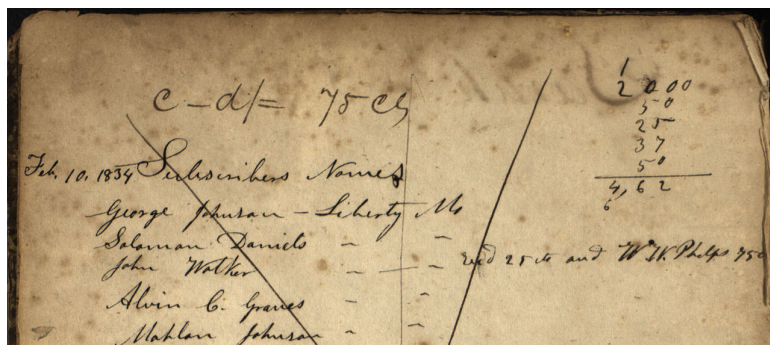 c – d/= 75 cts
1
2 0 00
5 0
2 5
3 7
5 0
4,62
6
Feb. 10. 1834 Subscribers Names
George Johnson – Liberty Mo
Solomon Daniels " "
John Walker " — " Recd 25 cts and W. W. Phelps 750
Alvin C. Graves " "
Mahlon Johnson " "